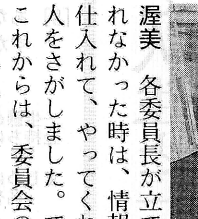 渥美　各委員長が立て
れなかった時は、情報
仕入れて、やってくれ
人をさがしました。
これからは、委員会の